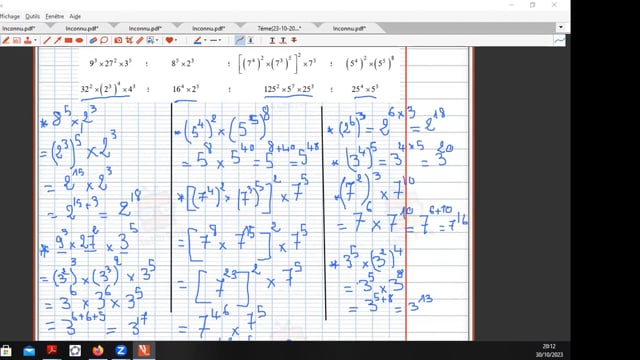 Affichage Outils Fenêtre Aide
Inconnu.pdf* Inconnu.pdf* Inconnu.pdf* 7éme(23-10-20...* Inconnu.pdf*
9³ × 27² × 3⁵ : 8⁵ × 2³ : [(7⁴)² × (7³)⁵]² × 7⁵ : (5⁴)² × (5⁵)⁸
32² × (2³)⁴ × 4³ : 16⁴ × 2⁵ : 125² × 5⁷ × 25³ : 25⁴ × 5⁵
* 8⁵ × 2³
= (2³)⁵ × 2³
= 2¹⁵ × 2³
= 2¹⁵⁺³ = 2¹⁸
* 9³ × 27² × 3⁵
= (3²)³ × (3³)² × 3⁵
= 3⁶ × 3⁶ × 3⁵
= 3⁶⁺⁶⁺⁵ = 3¹⁷
* (5⁴)² × (5⁵)⁸
= 5⁸ × 5⁴⁰ = 5⁸⁺⁴⁰ = 5⁴⁸
* [(7⁴)² × (7³)⁵]² × 7⁵
= [7⁸ × 7¹⁵]² × 7⁵
= [7²³]² × 7⁵
= 7⁴⁶ × 7⁵
* (2⁶)³ = 2⁶ˣ³ = 2¹⁸
* (3⁴)⁵ = 3⁴ˣ⁵ = 3²⁰
* (7²)³ × 7¹⁰
= 7⁶ × 7¹⁰ = 7⁶⁺¹⁰ = 7¹⁶
* 3⁵ × (3²)⁴
= 3⁵ × 3⁸
= 3⁵⁺⁸ = 3¹³
20:12
30/10/2023